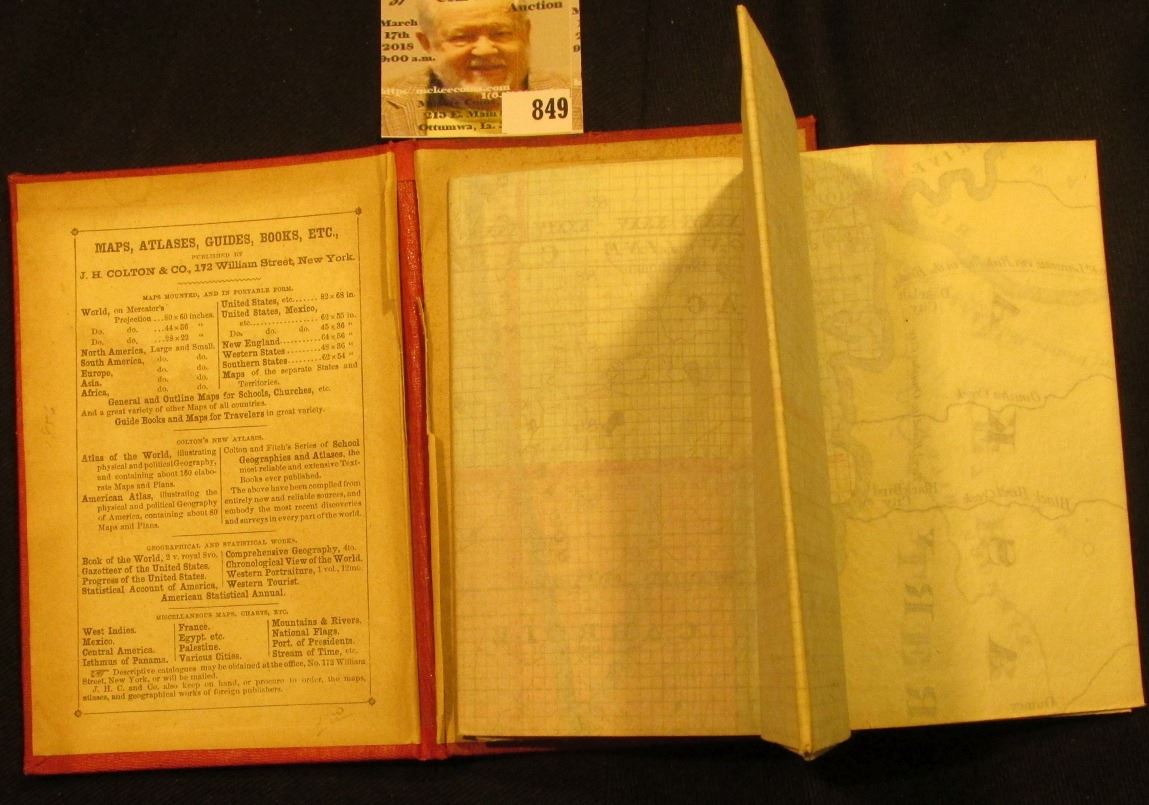 Auction
March
17th
2018
9:00 a.m.
849
215 E. Main
Ottumwa, Ia.
MAPS, ATLASES, GUIDES, BOOKS, ETC.,
PUBLISHED BY
J. H. COLTON & CO., 172 William Street, New York.
MAPS MOUNTED, AND IN PORTABLE FORM.
World, on Mercator's
Projection ...80 x 60 inches.
Do. do. ...44 x 36 "
Do. do. ...28 x 22 "
North America, Large and Small.
South America, do. do.
Europe, do. do.
Asia, do. do.
Africa, do. do.
United States, etc....... 82 x 68 in.
United States, Mexico,
etc................. 62 x 55 in.
Do. do. do. 45 x 36 "
New England......... 64 x 56 "
Western States........ 48 x 36 "
Southern States........ 62 x 54 "
Maps of the separate States and
Territories.
General and Outline Maps for Schools, Churches, etc.
And a great variety of other Maps of all countries.
Guide Books and Maps for Travelers in great variety.
COLTON'S NEW ATLASES.
Atlas of the World, illustrating
physical and political Geography,
and containing about 180 elabo-
rate Maps and Plans.
American Atlas, illustrating the
physical and political Geography
of America, containing about 80
Maps and Plans.
Colton and Fitch's Series of School
Geographies and Atlases, the
most reliable and extensive Text-
Books ever published.
The above have been compiled from
entirely new and reliable sources, and
embody the most recent discoveries
and surveys in every part of the world.
GEOGRAPHICAL AND STATISTICAL WORKS.
Book of the World, 2 v. royal 8vo.
Gazetteer of the United States.
Progress of the United States.
Statistical Account of America,
Comprehensive Geography, 4to.
Chronological View of the World.
Western Portraiture, 1 vol., 12mo.
Western Tourist.
American Statistical Annual.
MISCELLANEOUS MAPS, CHARTS, ETC.
West Indies.
Mexico.
Central America.
Isthmus of Panama.
France.
Egypt. etc.
Palestine.
Various Cities.
Mountains & Rivers.
National Flags.
Port. of Presidents.
Stream of Time, etc.
☞ Descriptive catalogues may be obtained at the office, No. 172 William
Street, New York, or will be mailed.
J. H. C. and Co. also keep on hand, or procure to order, the maps,
atlases, and geographical works of foreign publishers.